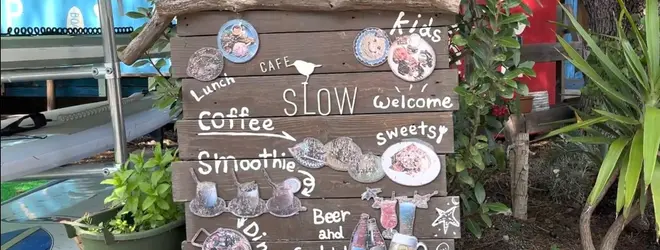 Kids
CAFE
Lunch
SLOW
welcome
Coffee
Sweets
Smoothie
Beer
and